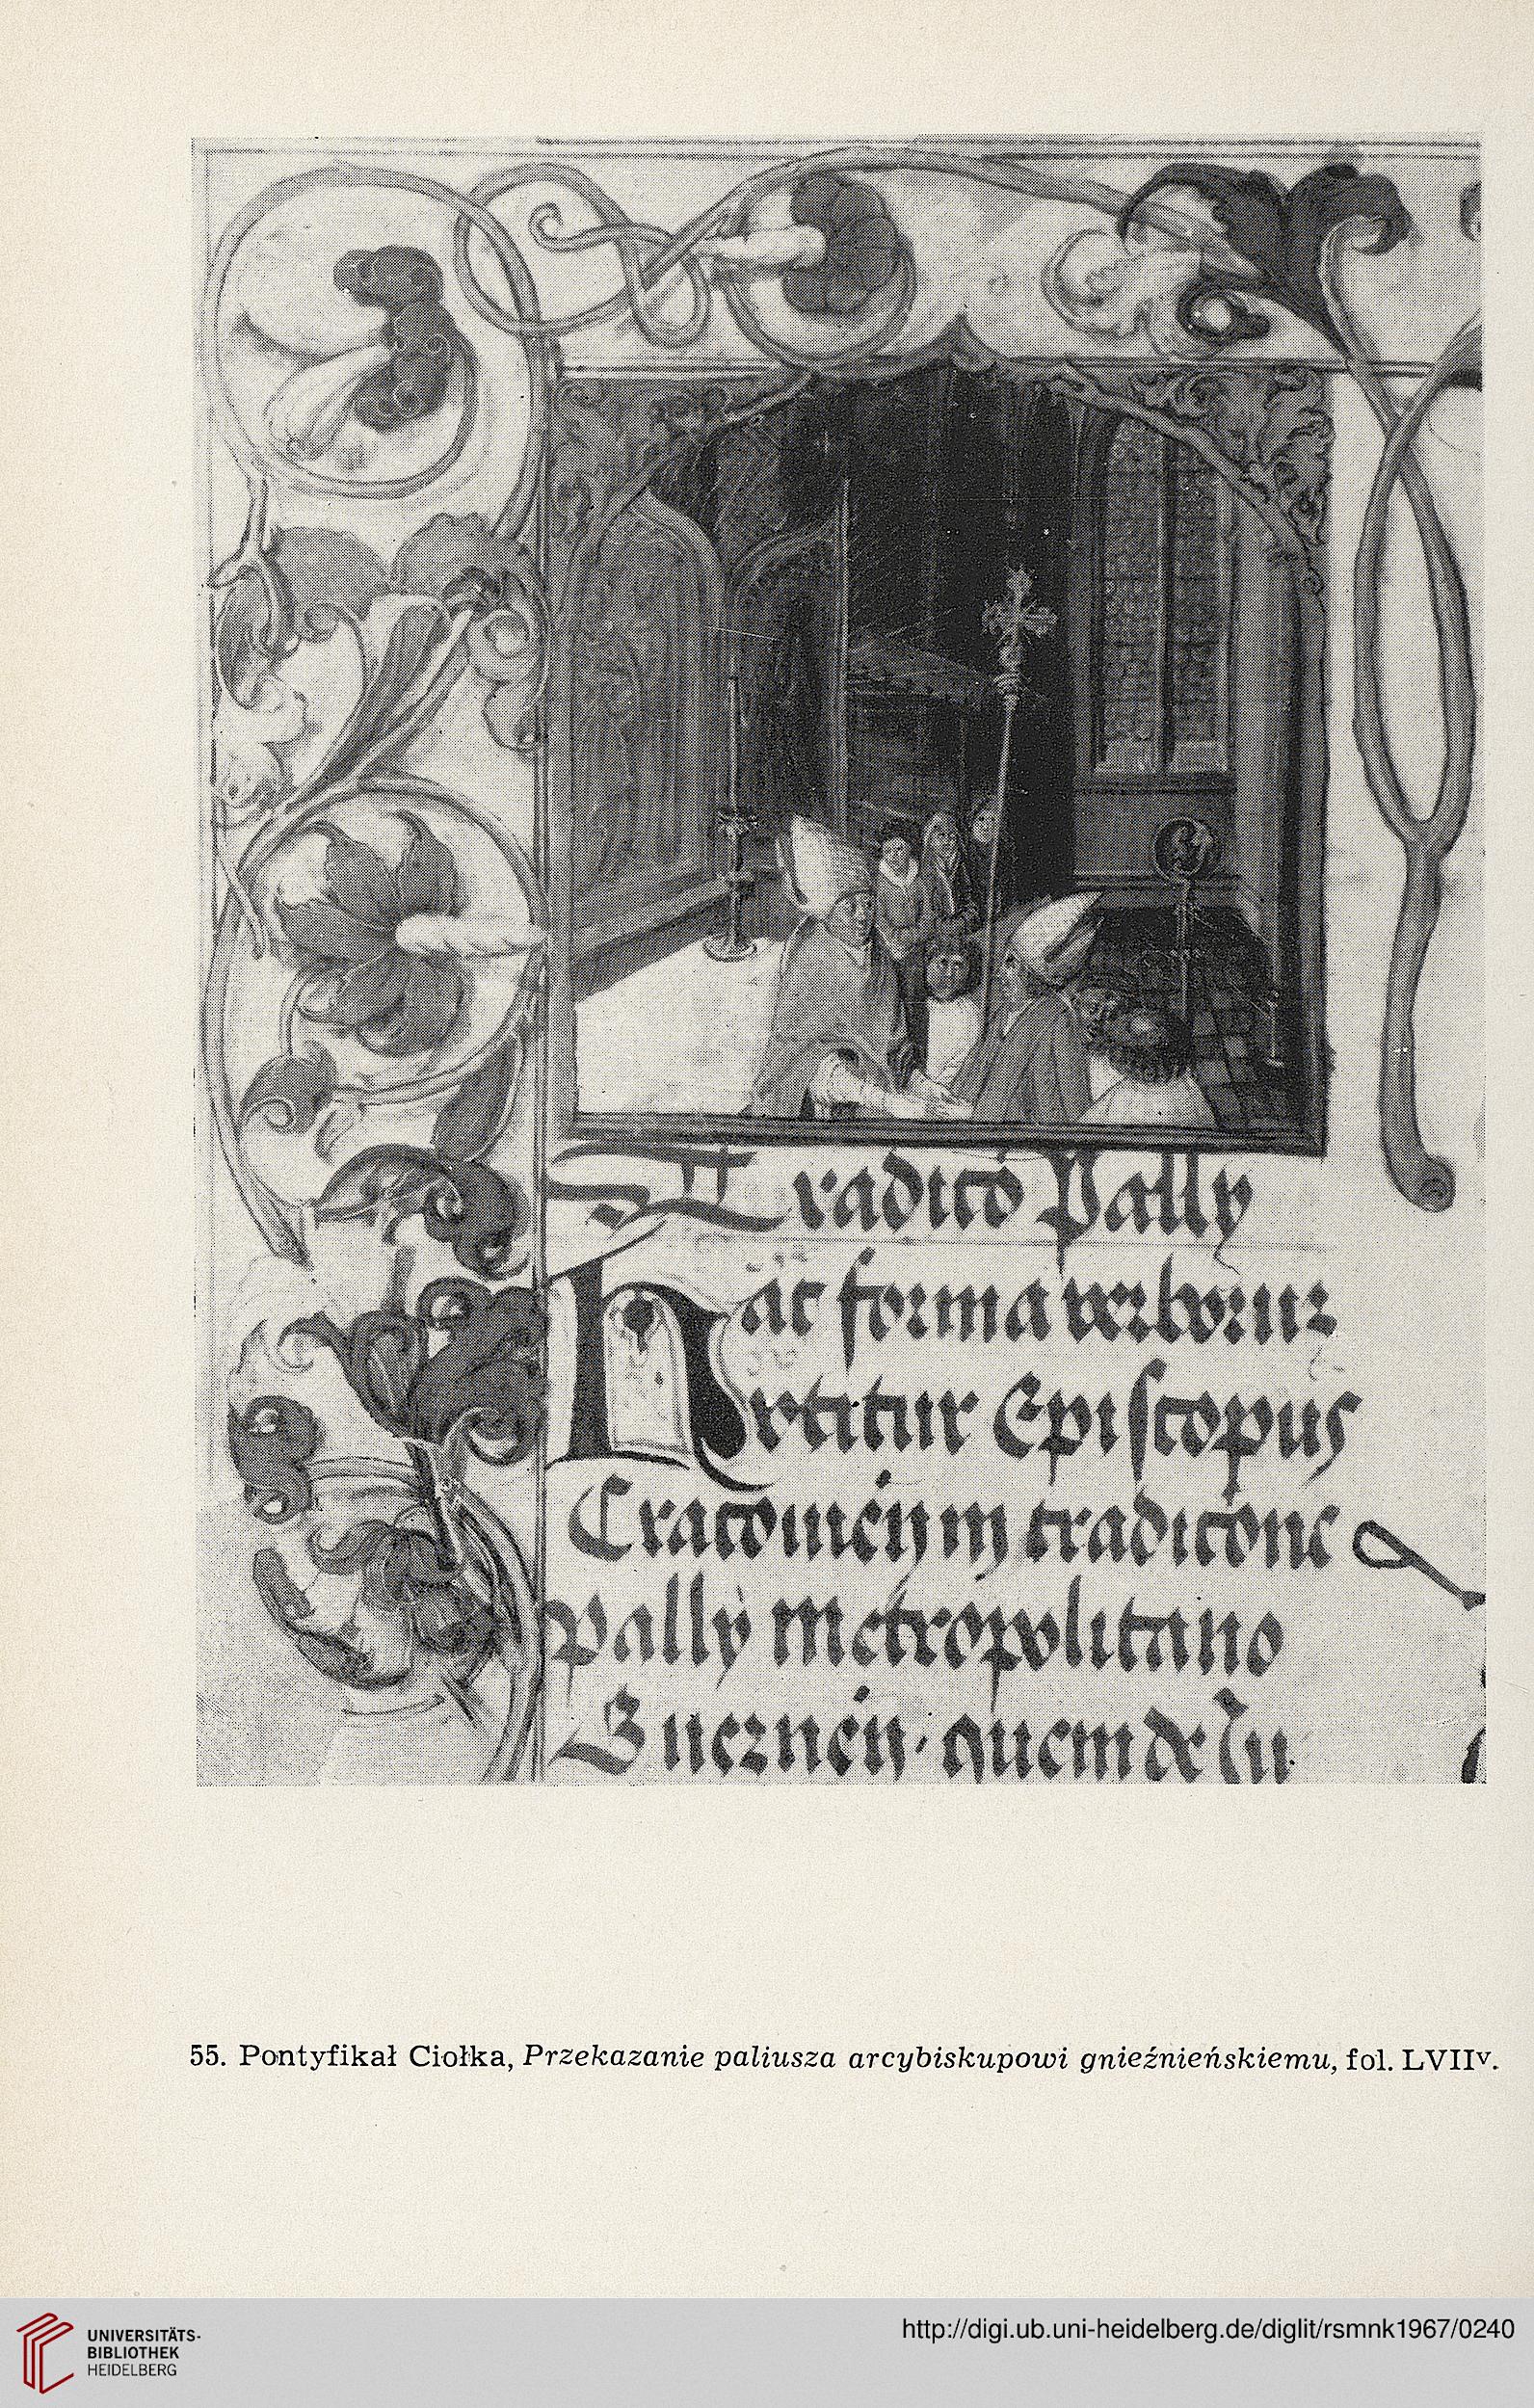 Tradicō Pally
Hac forma verboruz
vtitur Episcopus
Cracouieñ in tradicōne
Pally metropolitano
Gneznēn. quem de su
55. Pontyfikał Ciołka, Przekazanie paliusza arcybiskupowi gnieźnieńskiemu, fol. LVIIv.
UNIVERSITÄTS-
BIBLIOTHEK
HEIDELBERG
http://digi.ub.uni-heidelberg.de/diglit/rsmnk1967/0240